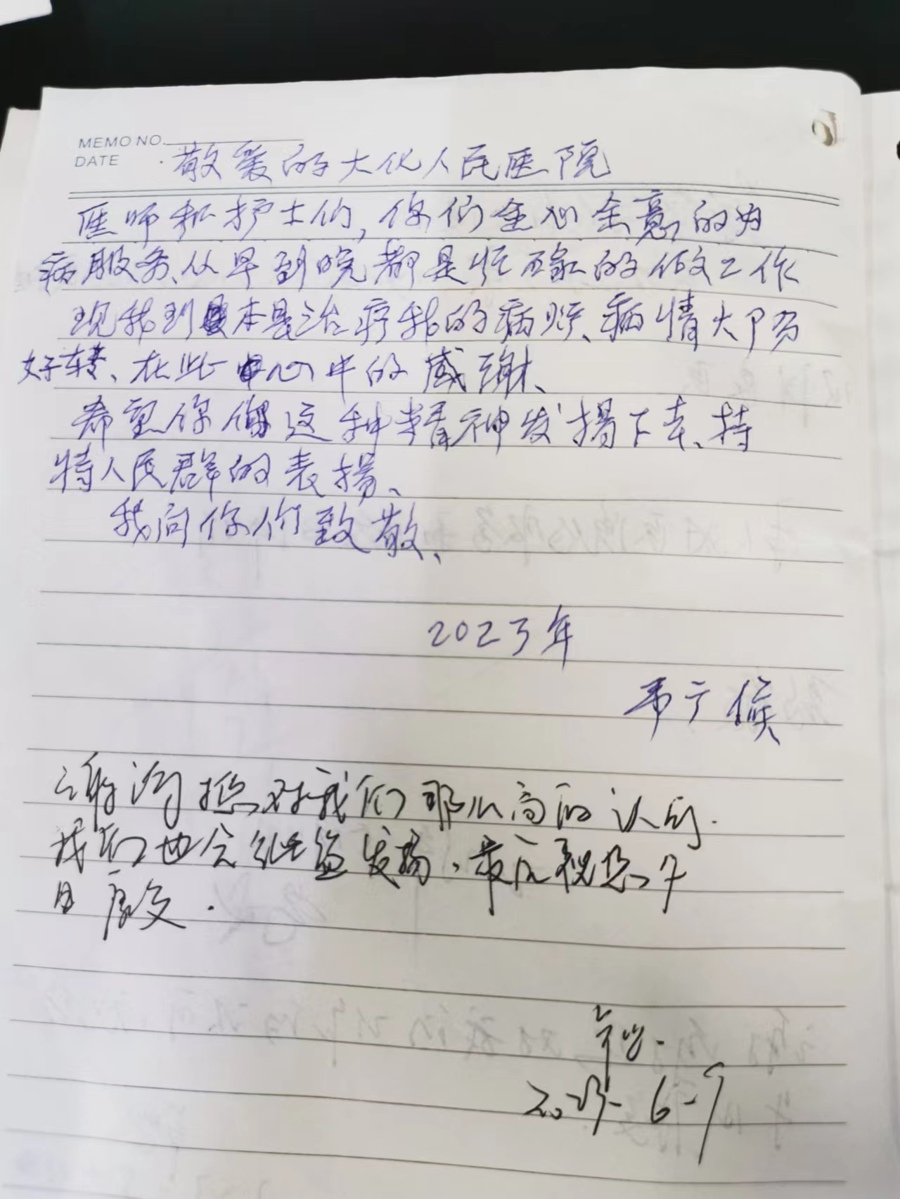 MEMO NO.
DATE
敬爱的大化人民医院
医师和护士们,你们全心全意的为
病服务、从早到晚都是忙碌的做工作
现我到本是治疗我的病师、病情大阳分
好转、在此心中的感谢、
希望你们这种精神发扬下去、持
特人民群的表扬、
我向你们致敬、
2023年
韦广候
谢谢您对我们那么高的认可.
我们也会继续发扬、最后祝您早
日康复.
2023-6-9